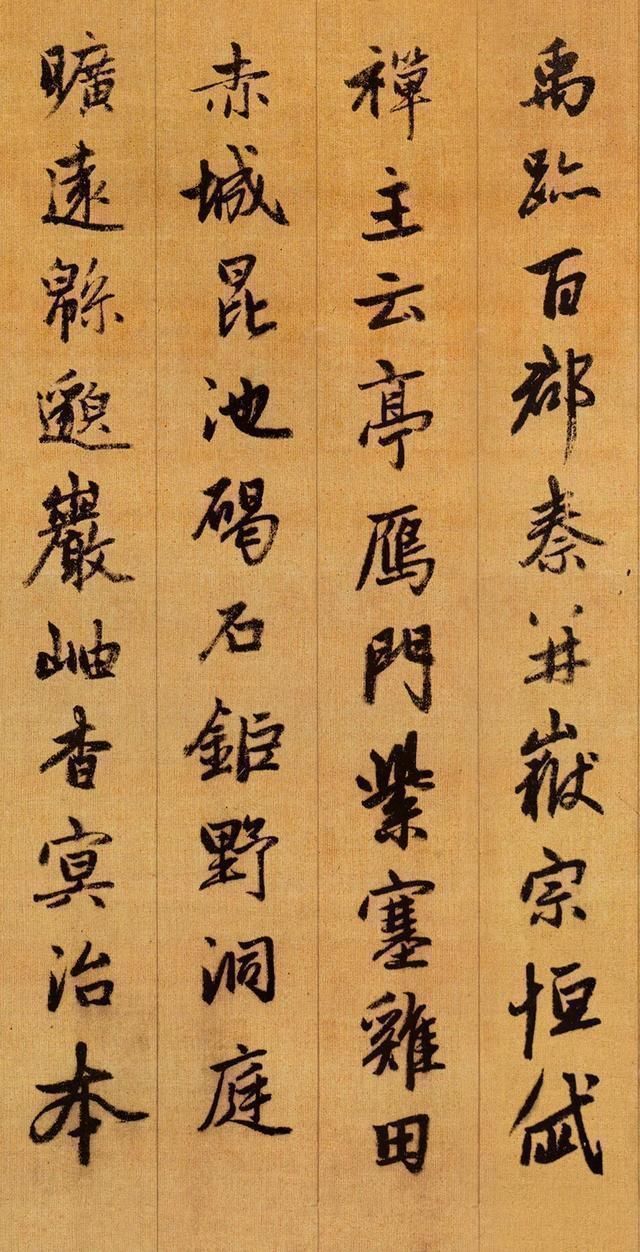 禹跡百郡秦并嶽宗恒岱
禪主云亭鴈門紫塞雞田
赤城昆池碣石鉅野洞庭
曠遠緜邈巖岫杳冥治本